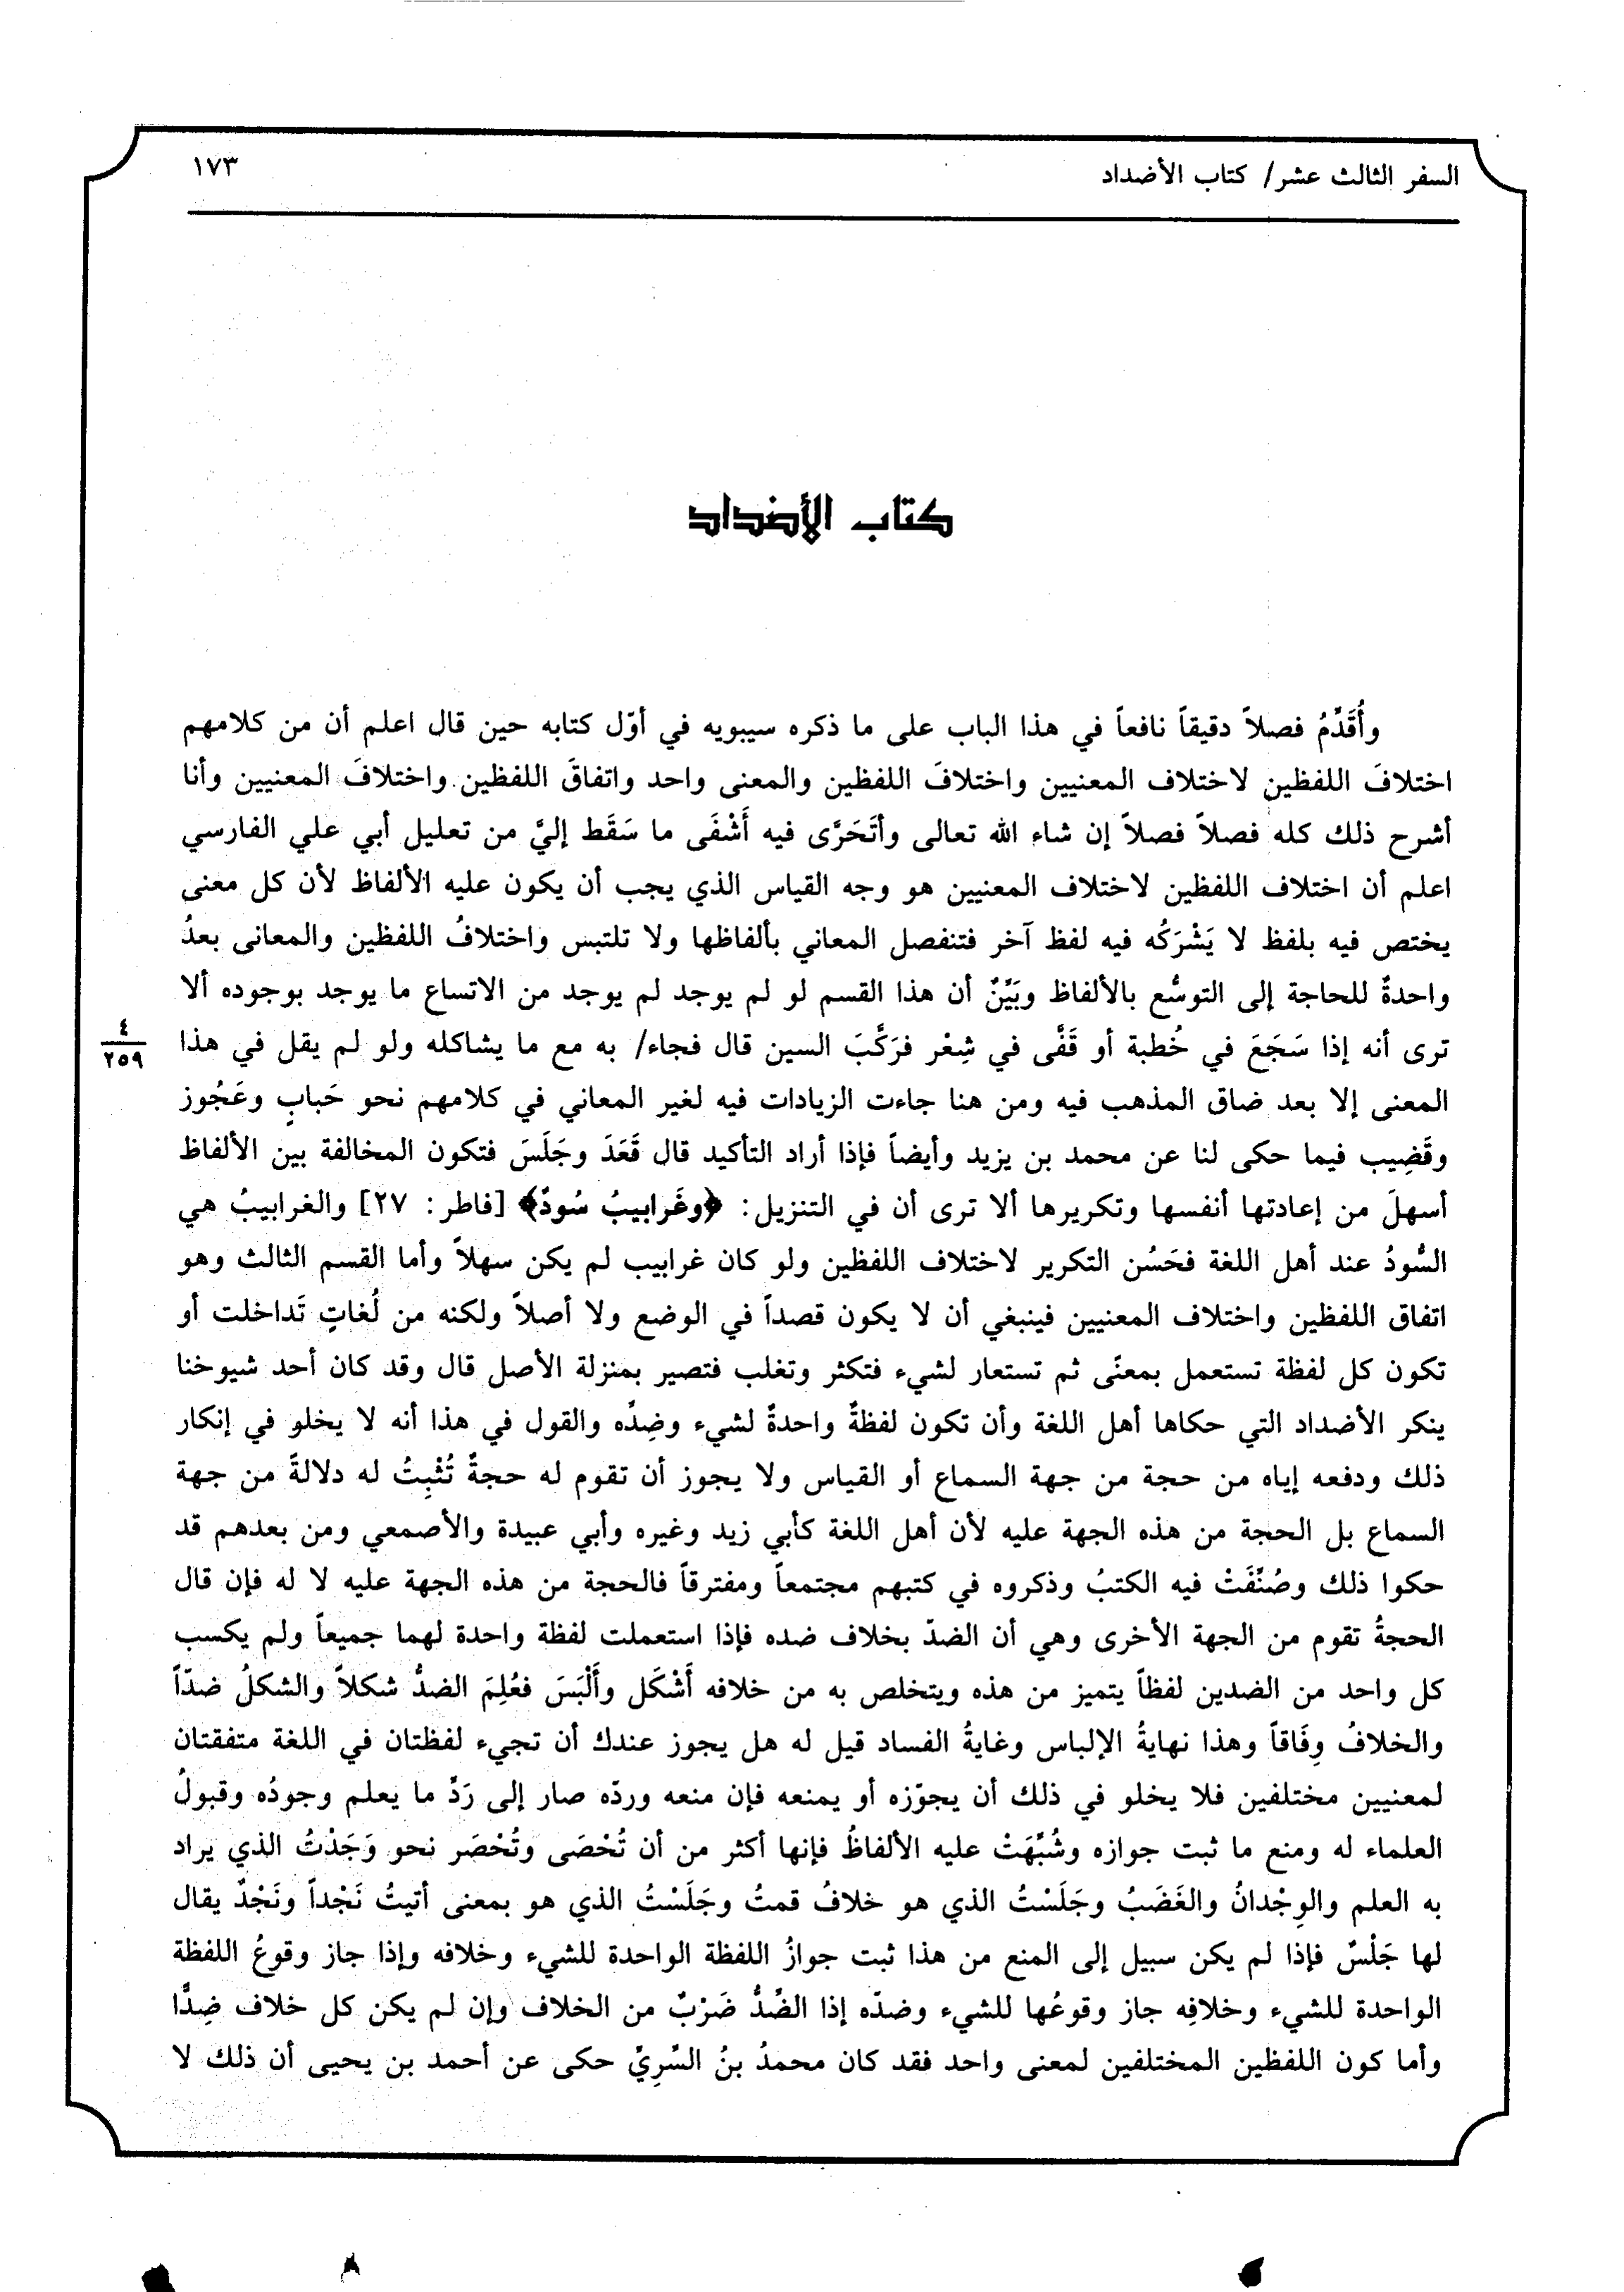 السفر الثالث عشر/ كتاب الأضداد
١٧٣
كتاب الأضداد
وأُقَدِّمُ فصلاً دقيقاً نافعاً في هذا الباب على ما ذكره سيبويه في أوّل كتابه حين قال اعلم أن من كلامهم
اختلافَ اللفظين لاختلاف المعنيين واختلافَ اللفظين والمعنى واحد واتفاقَ اللفظين واختلافَ المعنيين وأنا
أشرح ذلك كله فصلاً فصلاً إن شاء الله تعالى وأتَحَرَّى فيه أَشْفَى ما سَقَط إليَّ من تعليل أبي علي الفارسي
اعلم أن اختلاف اللفظين لاختلاف المعنيين هو وجه القياس الذي يجب أن يكون عليه الألفاظ لأن كل معنى
يختص فيه بلفظ لا يَشْرَكُه فيه لفظ آخر فتنفصل المعاني بألفاظها ولا تلتبس واختلافُ اللفظين والمعانى بعدُ
واحدةٌ للحاجة إلى التوسُّع بالألفاظ وبَيِّنٌ أن هذا القسم لو لم يوجد لم يوجد من الاتساع ما يوجد بوجوده ألا
ترى أنه إذا سَجَعَ في خُطبة أو قَفَّى في شِعْر فرَكَّبَ السين قال فجاء/ به مع ما يشاكله ولو لم يقل في هذا
٤
٢٥٩
المعنى إلا بعد ضاق المذهب فيه ومن هنا جاءت الزيادات فيه لغير المعاني في كلامهم نحو حَبابٍ وعَجُوز
وقَضِيب فيما حكى لنا عن محمد بن يزيد وأيضاً فإذا أراد التأكيد قال قَعَدَ وجَلَسَ فتكون المخالفة بين الألفاظ
أسهلَ من إعادتها أنفسها وتكريرها ألا ترى أن في التنزيل: ﴿وغَرابيبُ سُودٌ﴾ [فاطر: ٢٧] والغرابيبُ هي
السُّودُ عند أهل اللغة فحَسُن التكرير لاختلاف اللفظين ولو كان غرابيب لم يكن سهلاً وأما القسم الثالث وهو
اتفاق اللفظين واختلاف المعنيين فينبغي أن لا يكون قصداً في الوضع ولا أصلاً ولكنه من لُغاتٍ تَداخلت أو
تكون كل لفظة تستعمل بمعنًى ثم تستعار لشيء فتكثر وتغلب فتصير بمنزلة الأصل قال وقد كان أحد شيوخنا
ينكر الأضداد التي حكاها أهل اللغة وأن تكون لفظةٌ واحدةٌ لشيء وضِدِّه والقول في هذا أنه لا يخلو في إنكار
ذلك ودفعه إياه من حجة من جهة السماع أو القياس ولا يجوز أن تقوم له حجةٌ تُثْبِتُ له دلالةً من جهة
السماع بل الحجة من هذه الجهة عليه لأن أهل اللغة كأبي زيد وغيره وأبي عبيدة والأصمعي ومن بعدهم قد
حكوا ذلك وصُنِّفَتْ فيه الكتبُ وذكروه في كتبهم مجتمعاً ومفترقاً فالحجة من هذه الجهة عليه لا له فإن قال
الحجةُ تقوم من الجهة الأخرى وهي أن الضدّ بخلاف ضده فإذا استعملت لفظة واحدة لهما جميعاً ولم يكسب
كل واحد من الضدين لفظاً يتميز من هذه ويتخلص به من خلافه أَشْكَل وأَلْبَسَ فعُلِمَ الضدُّ شكلاً والشكلُ ضدّاً
والخلافُ وِفَاقاً وهذا نهايةُ الإلباس وغايةُ الفساد قيل له هل يجوز عندك أن تجيء لفظتان في اللغة متفقتان
لمعنيين مختلفين فلا يخلو في ذلك أن يجوّزه أو يمنعه فإن منعه وردّه صار إلى رَدِّ ما يعلم وجودُه وقبولُ
العلماء له ومنع ما ثبت جوازه وشُبِّهَتْ عليه الألفاظُ فإنها أكثر من أن تُحْصَى وتُحْصَر نحو وَجَدْتُ الذي يراد
به العلم والوِجْدانُ والغَضَبُ وجَلَسْتُ الذي هو خلافُ قمتُ وجَلَسْتُ الذي هو بمعنى أتيتُ نَجْداً ونَجْدٌ يقال
لها جَلْسٌ فإذا لم يكن سبيل إلى المنع من هذا ثبت جوازُ اللفظة الواحدة للشيء وخلافه وإذا جاز وقوعُ اللفظة
الواحدة للشيء وخلافِه جاز وقوعُها للشيء وضدّه إذا الضِّدُّ ضَرْبٌ من الخلاف وإن لم يكن كل خلاف ضِدًّا
وأما كون اللفظين المختلفين لمعنى واحد فقد كان محمدُ بنُ السَّرِيِّ حكى عن أحمد بن يحيى أن ذلك لا